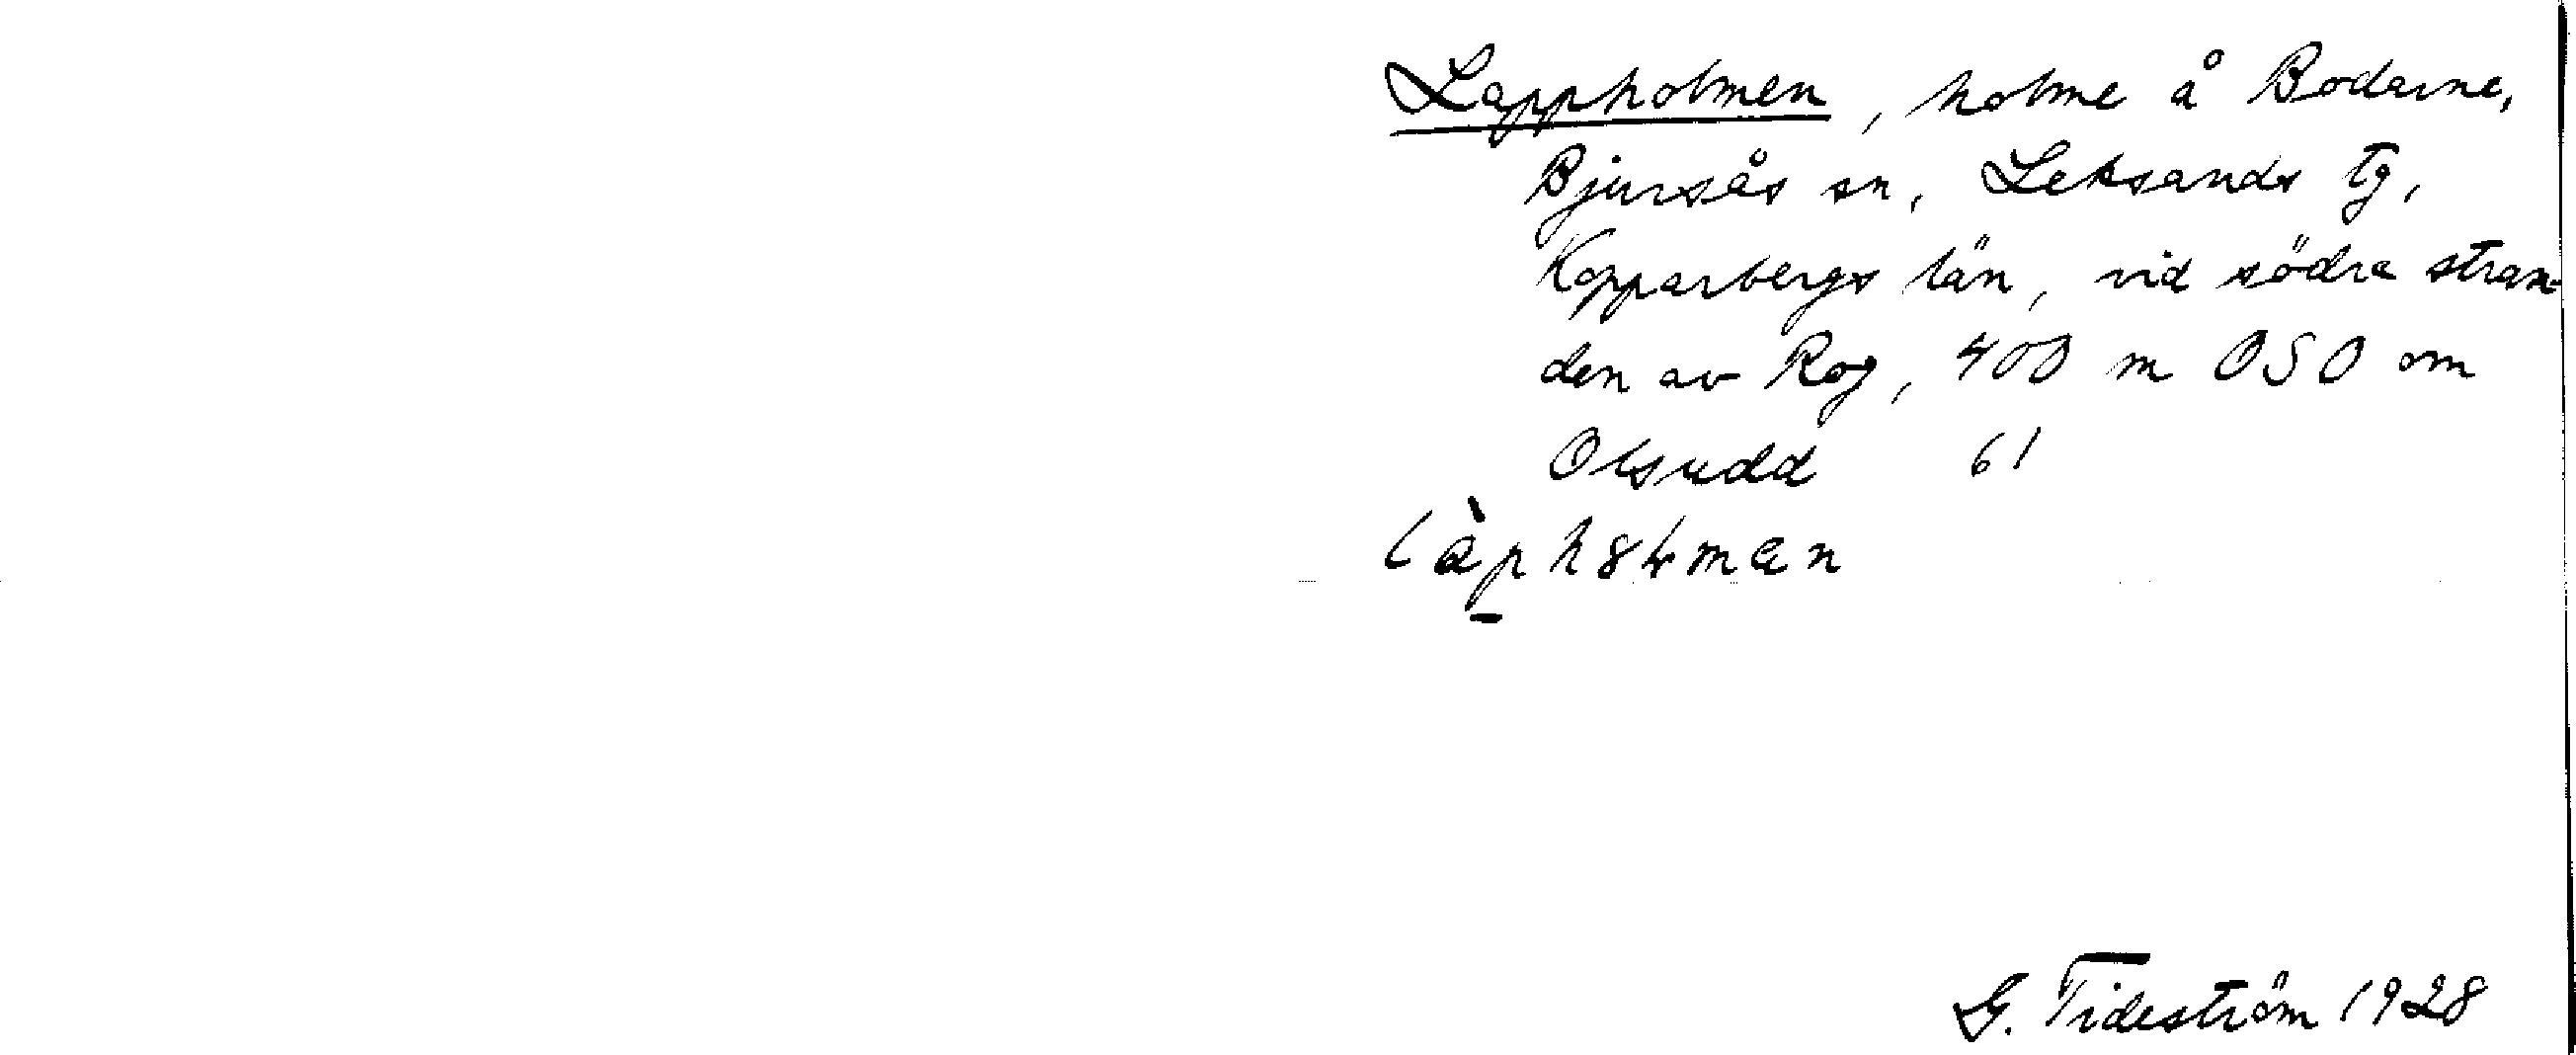 Lappholmen, holme å Bodarne,
Bjursås sn, Leksands tg,
Kopparbergs län, vid södra stran-
den av Rog, 400 m OSO om
Olsudd 61
G. Tideström 1928